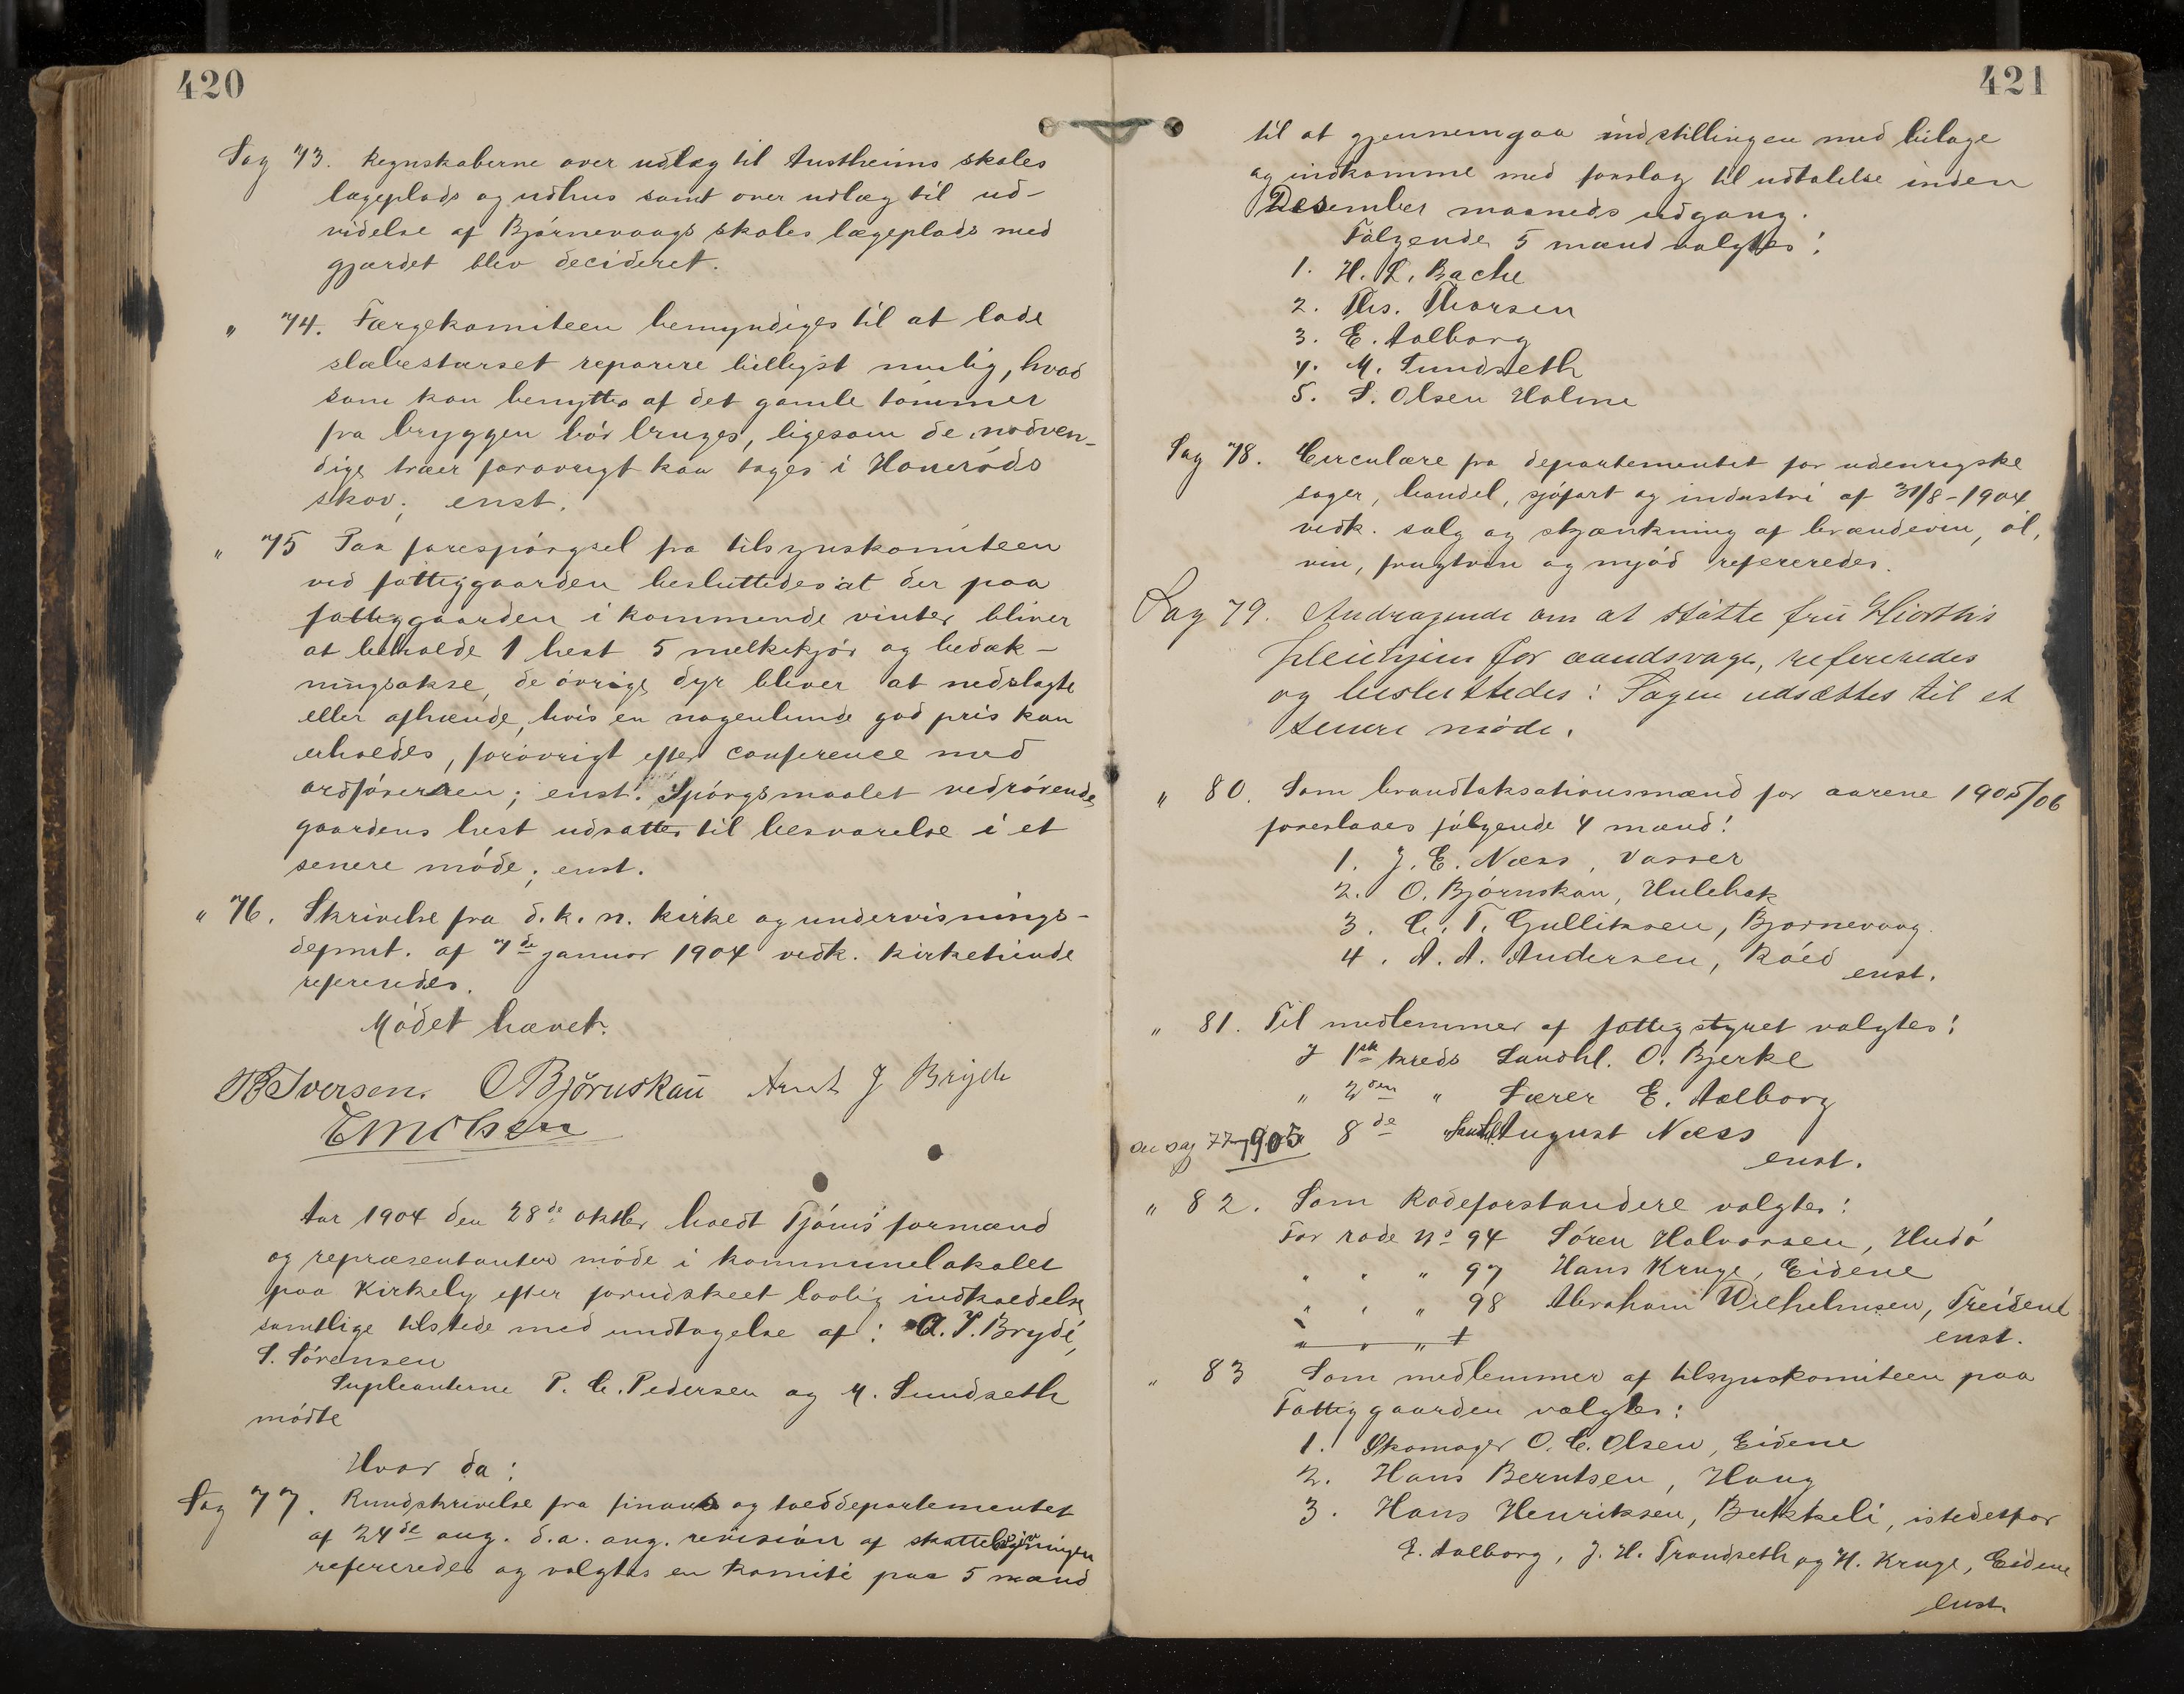 420
Sag 73. Regnskaberne over udlæg til Austheims skoles
lægeplads og udhus samt over udlæg til ud-
videlse af Bjørnevaags skoles lægeplads med
gjærdet blev decideret.
" 74. Færgekomiteen bemyndiges til at lade
slæbestærset reparere billigst mulig, hvad
som kan benyttes af det gamle tømmer
fra bryggen bør bruges, ligesom de nødven-
dige træer forøvrigt kan tages i Honerøds
skov; enst.
" 75 Paa forespørgsel fra tilsynskomiteen
ved fattiggaarden besluttedes at der paa
fattiggaarden i kommende vinter bliver
at beholde 1 hest 5 melkekjør og bedæk-
ningsokse, de øvrige dyr bliver at nedslagte
eller afhænde, hvis en nogenlunde god pris kan
erholdes, forøvrigt efter conference med
ordføreren; enst. Spørgsmaalet vedrørende
gaardens hest udsattes til besvarelse i et
senere møde; enst.
" 76. Skrivelse fra d. k. n. kirke og undervisnings-
depmt. af 7de januar 1904 vedk. kirketiende
refereredes.
Mødet hævet.
B Iversen. O Bjørnskau Arnt J Bryde
E M Olsen
Aar 1904 den 28de oktbr holdt Tjømø formænd
og repræsentanter møde i kommunelokalet
paa Kirkely efter forudskeet lovlig indkaldelse
samtlige tilstede med undtagelse af: A. J. Bryde,
S. Sørensen
Supleanterne P. C. Pedersen og M. Sundseth
mødte
Hvor da:
Sag 77. Rundskrivelse fra finans og tolddepartementet
af 24de aug. d.a. ang. revision af skattelovgivningen
refereredes og valgtes en komite paa 5 mænd
421
til at gjennemgaa indstillingen med bilage
og indkomme med forslag til udtalelse inden
Desember maaneds udgang.
Følgende 5 mænd valgtes:
1. H. L. Bache
2. Ths. Thorsen
3. E. Aalborg
4. M. Sundseth
5. S. Olsen Holme
Sag 78. Circulære fra departementet for udenrigske
sager, handel, sjøfart og industri af 31/8-1904
vedk. salg og skjænkning af brændevin, øl,
vin, frugtvin og mjød refereredes.
Sag 79. Andragende om at støtte fru Hiorths
pleiehjem for aandsvage, refereredes
og besluttedes: Sagen udsættes til et
senere møde.
" 80. Som brandtaksationsmænd for aarene 1905/06
foreslaaes følgende 4 mænd:
1. J. E. Næss, Vasser
2. O. Bjørnskau, Hulebak
3. C. T. Gulliksen, Bjørnevaag
4. A. A. Andersen, Røed
enst.
" 81. Til medlemmer af fattigstyret valgtes:
I 1ste kreds Landhl. O. Bjerke
" 2den " Lærer E. Aalborg
sag 77-1905 8de Landhl. August Næss
enst.
" 82. Som Rodeforstandere valgtes:
For rode No 94 Søren Halvorsen, Hudø
" " " 97 Hans Kruge, Eidene
" " " 98 Abraham Wilhelmsen, Treidene
" " "
enst.
" 83 Som medlemmer af tilsynskomiteen paa
Fattiggaarden valgtes:
1. Skomager O. C. Olsen, Eidene
2. Hans Berntsen, Haug
3. Hans Henriksen, Bukkeli, istedetfor
E. Aalborg, J. H. Trondseth og H. Kruge, Eidene
enst.